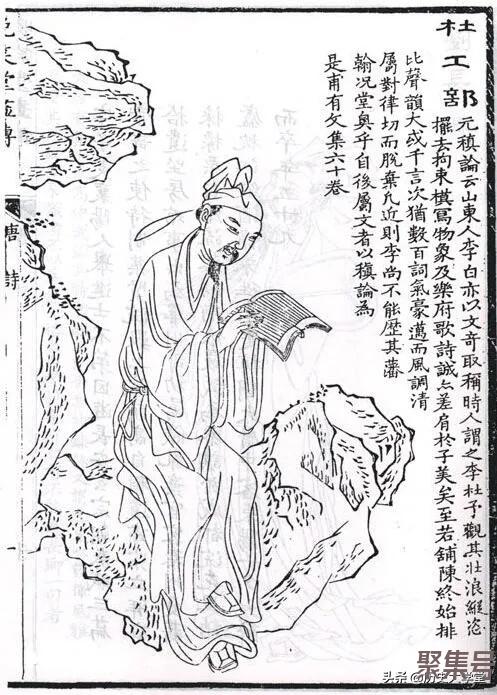 杜工部
元稹論云山東人李白亦以文奇取稱時人謂之李杜予觀其壯浪縱恣
擺去拘束模寫物象及樂府歌詩誠亦差肩於子美矣至若鋪陳終始排
比聲韻大或千言次猶數百詞氣豪邁而風調清
屬對律切而脫棄凡近則李尚不能歷其藩
翰況堂奧乎自後屬文者以稹論為
是甫有文集六十卷
笑堂畫傳
唐
詩
一
聚集号
头条